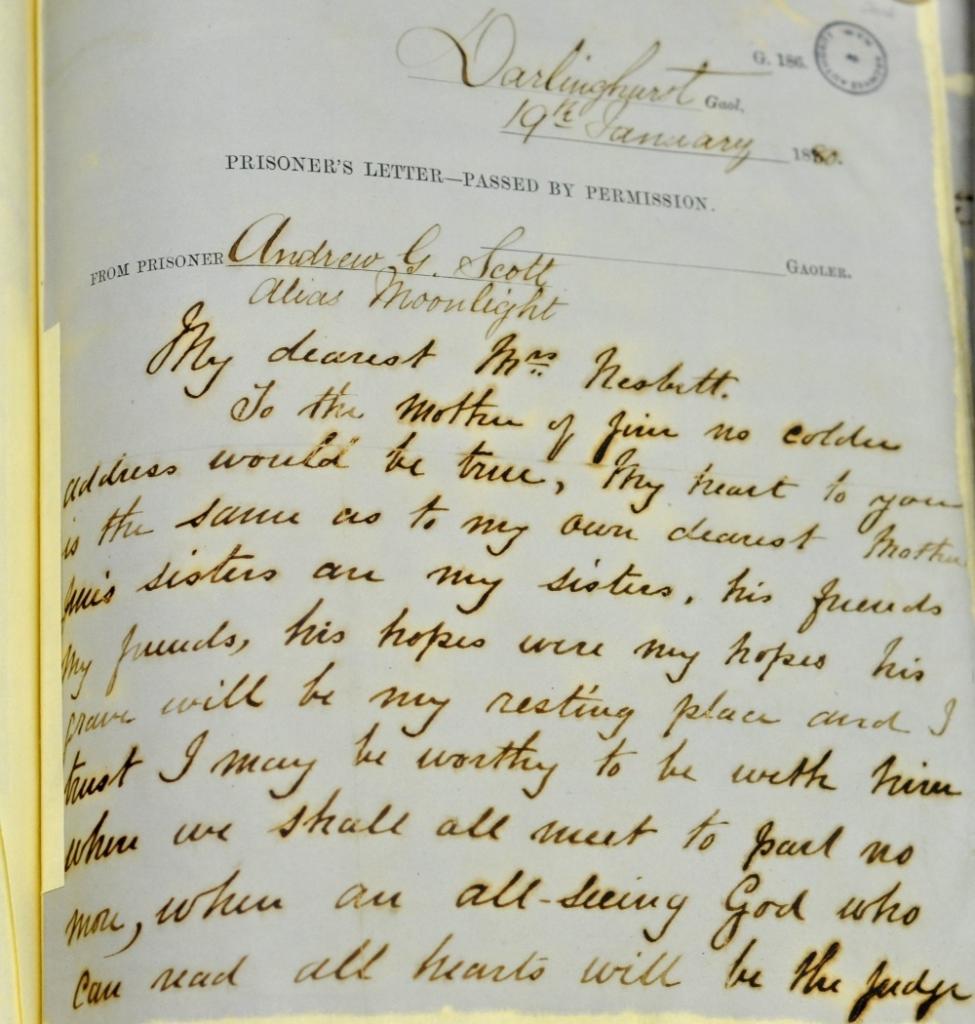 G. 186.
Darlinghurst Gaol,
19th January 1880.
PRISONER'S LETTER—PASSED BY PERMISSION.
FROM PRISONER Andrew G. Scott GAOLER.
Alias Moonlight
My dearest Mrs Nesbitt.
To the Mother of Jim no colder
address would be true, My heart to you
is the same as to my own dearest Mother
Jim's sisters are my sisters, his friends
My friends, his hopes were my hopes his
grave will be my resting place and I
trust I may be worthy to be with him
when we shall all meet to part no
more, when an all-seeing God who
can read all hearts will be the Judge